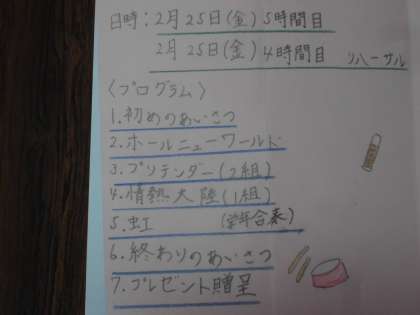 日時:2月25日(金)5時間目
2月25日(金)4時間目 リハーサル
〈プログラム〉
1.初めのあいさつ
2.ホールニューワールド
3.プリテンダー(2組)
4.情熱大陸(1組)
5.虹 (学年合奏)
6.終わりのあいさつ
7.プレゼント贈呈